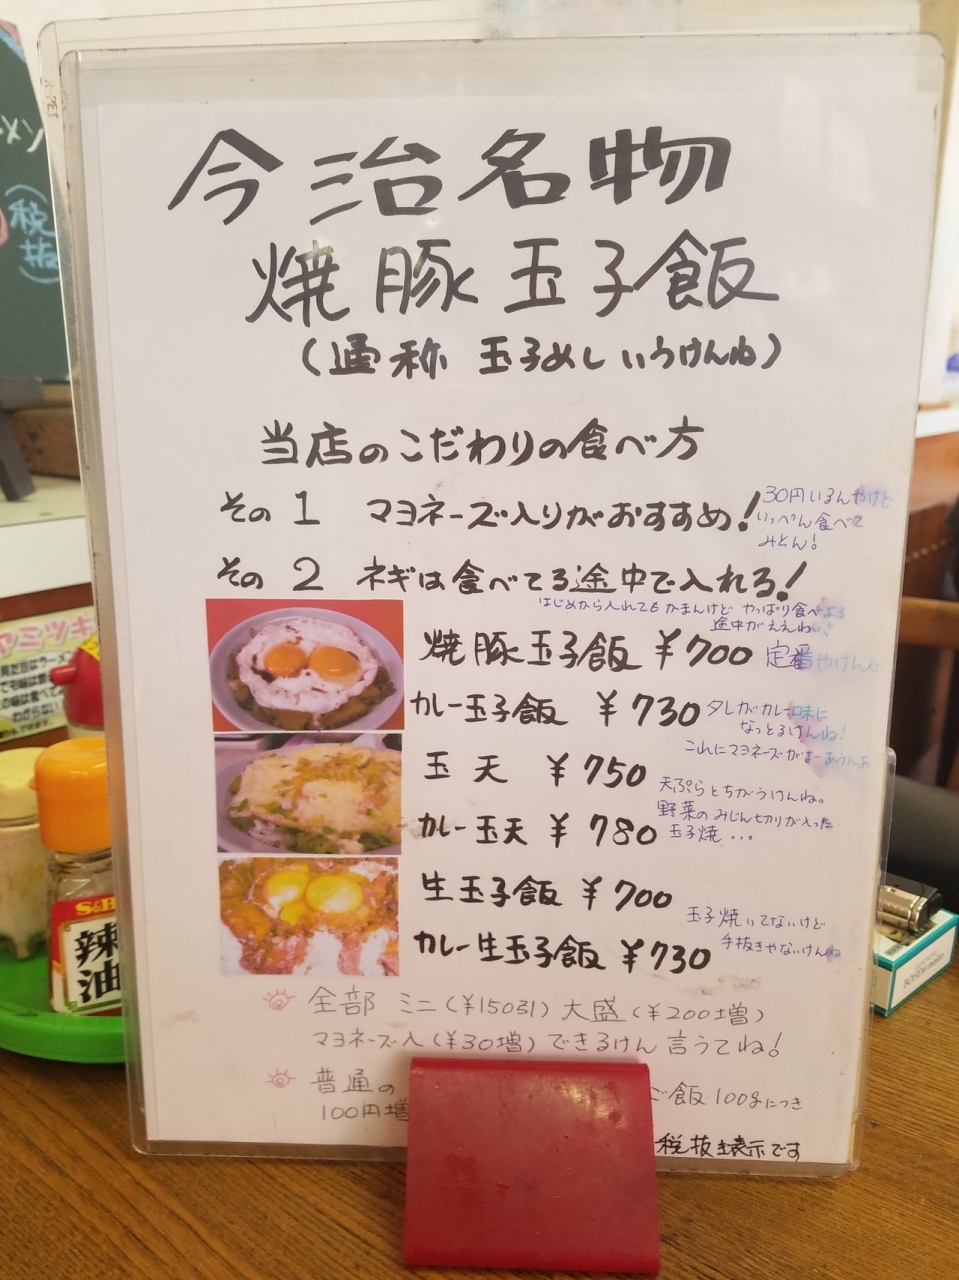 今治名物
焼豚玉子飯
(通称 玉子めしいうけんね)
当店のこだわりの食べ方
その1 マヨネーズ入りがおすすめ!
30円いるんやけど
いっぺん食べて
みとん!
その2 ネギは食べてる途中で入れる!
はじめから入れてもかまんけど やっぱり食べよる
途中がええわ
焼豚玉子飯 ¥700
定番やけんね
カレー玉子飯 ¥730
タレがカレー味に
なっとるけんね!
これにマヨネーズがまーあうんよ
玉天 ¥750
天ぷらとちがうけんね。
野菜のみじん切りが入った
玉子焼...
カレー玉天 ¥780
生玉子飯 ¥700
玉子焼いてないけど
手抜きやないけんね
カレー生玉子飯 ¥730
全部 ミニ(¥150引) 大盛(¥200増)
マヨネーズ入(¥30増)できるけん 言うてね!
普通の
ご飯100gにつき
100円増
税抜き表示です
メン
(税
抜)
ヤミツキ
わからない
S&B
辣
油